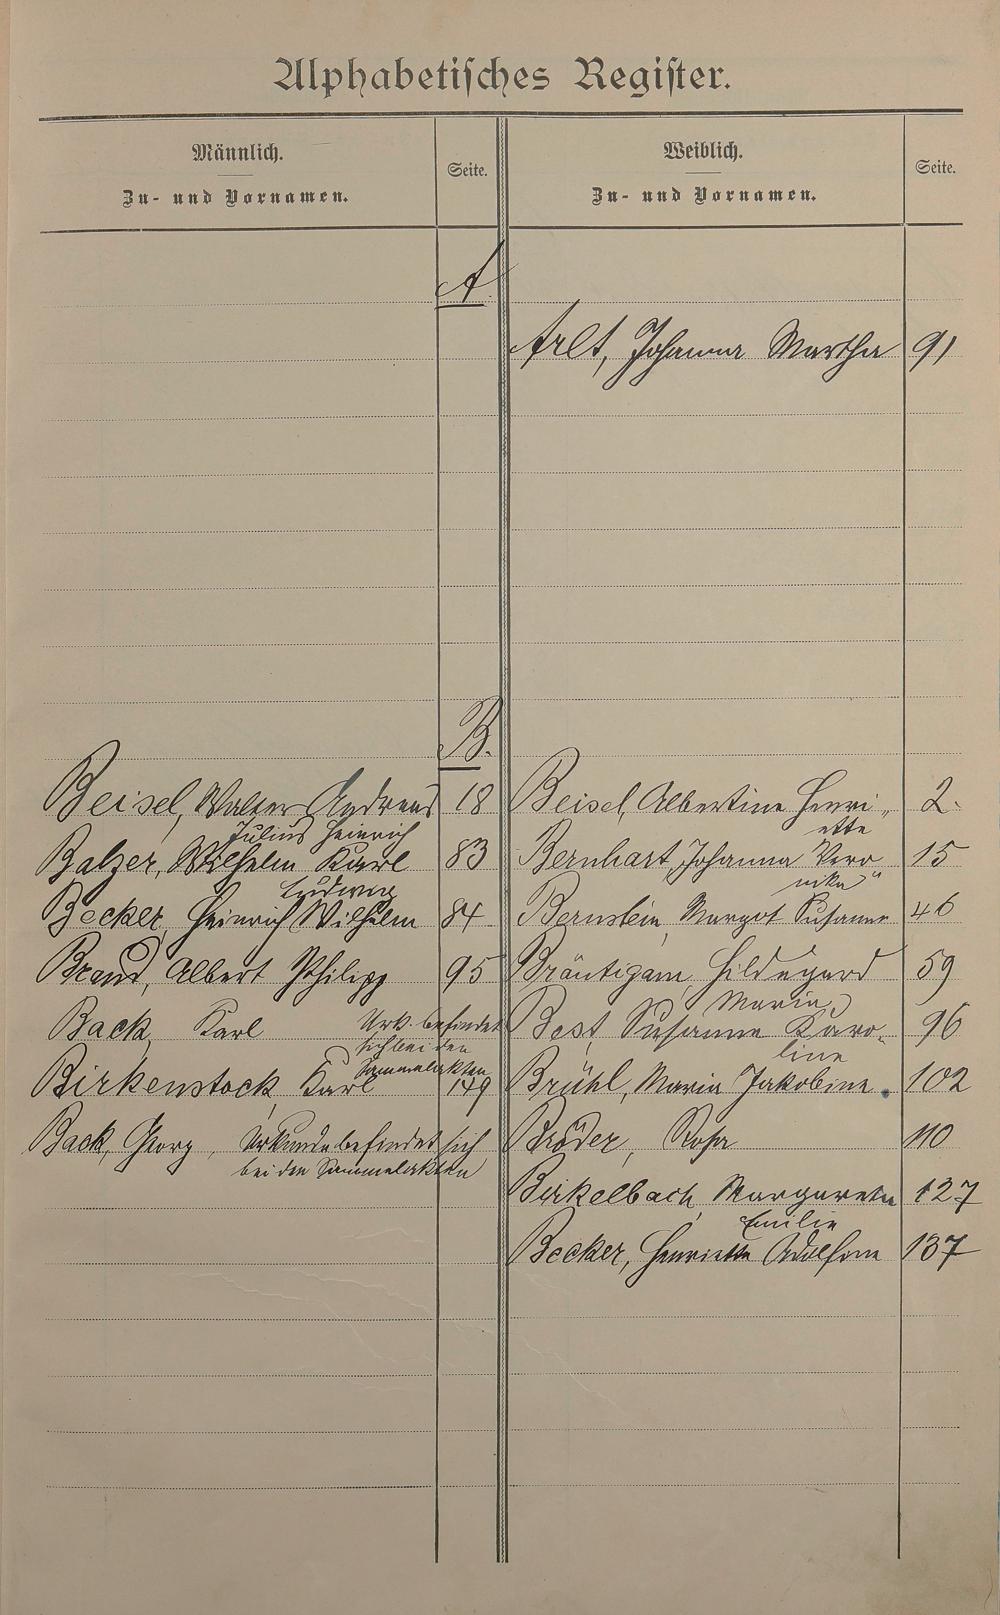 Alphabetisches Register.
Männlich.
Zu- und Vornamen.
Seite.
Weiblich.
Zu- und Vornamen.
Seite.
A
Arlt, Johanna Martha 91
B.
Beisel, Walter Andreas 18
Julius Heinrich
Balzer, Wilhelm Karl 83
Ludwig
Becker, Heinrich Wilhelm 84
Braud, Albert Philipp 95
Back, Karl Urk. befindet
sich bei den
Sammelakten
Birkenstock, Karl 149
Back, Georg, Urkunde befindet sich
bei den Sammelakten
Beisel, Albertine Henri„ 2.
ette
Bernhart, Johanna Vero 15
nika"
Bernstein, Margot Susanne 46
Bräutigam, Hildegard 59
Maria
Best, Susanne Karo- 96
line
Brühl, Maria Jakobine. 102
Bröder, Rosa 110
Birkelbach, Margareta 127
Emilie
Becker, Henriette Adolfine 137